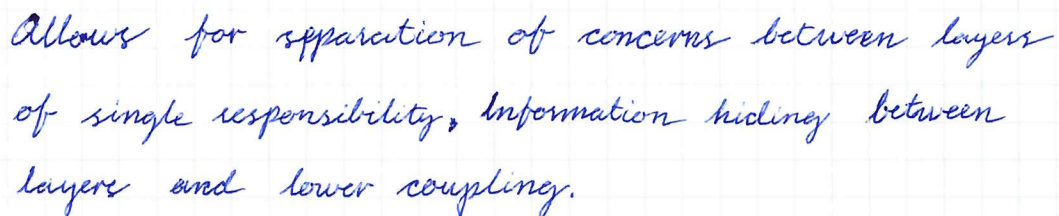 Allows for separation of concerns between layers
of single responsibility, Information hiding between
layers and lower coupling.